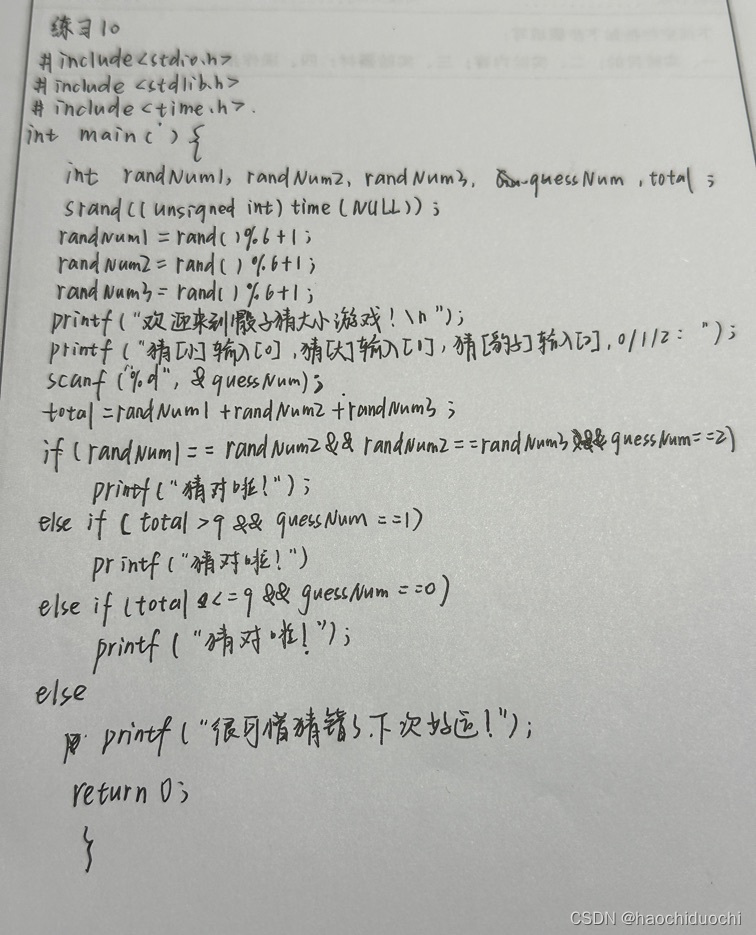 练习10
#include<stdio.h>
# include <stdlib.h>
# include <time.h>.
int main( ) {
int randNum1, randNum2, randNum3, guessNum, total ;
srand((unsigned int) time (NULL)) ;
randNum1 = rand( )%6+1 ;
randNum2 = rand( ) %6+1 ;
randNum3 = rand( ) %6+1 ;
printf("欢迎来到骰子猜大小游戏! \n ");
printf ("猜[小]输入[0],猜[大]输入[1],猜[豹子]输入[2],0/1/2: ");
scanf ("%d", &guessNum);
total =randNum1 +randNum2 +randNum3 ;
if (randNum1 == randNum2 && randNum2 ==randNum3 && guessNum==2)
printf("猜对啦!");
else if ( total >9 && guessNum ==1)
printf ("猜对啦!")
else if (total <=9 && guessNum ==0)
printf ( "猜对啦!");
else
printf ("很可惜猜错了.下次好运!");
return 0;
}
CSDN @haochiduochi